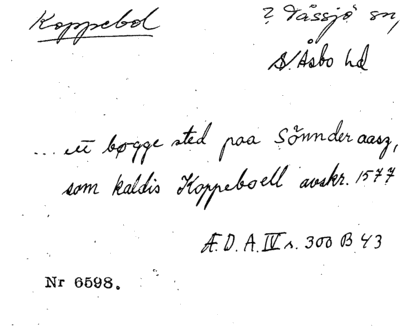 Koppebol
? Tåssjö sn,
N. Åsbo hd
... ett bøgge sted paa Sönnder aasz,
som kaldis Koppeboell avskr. 1577
Æ.D.A. IV s. 300 B 43
Nr 6598.